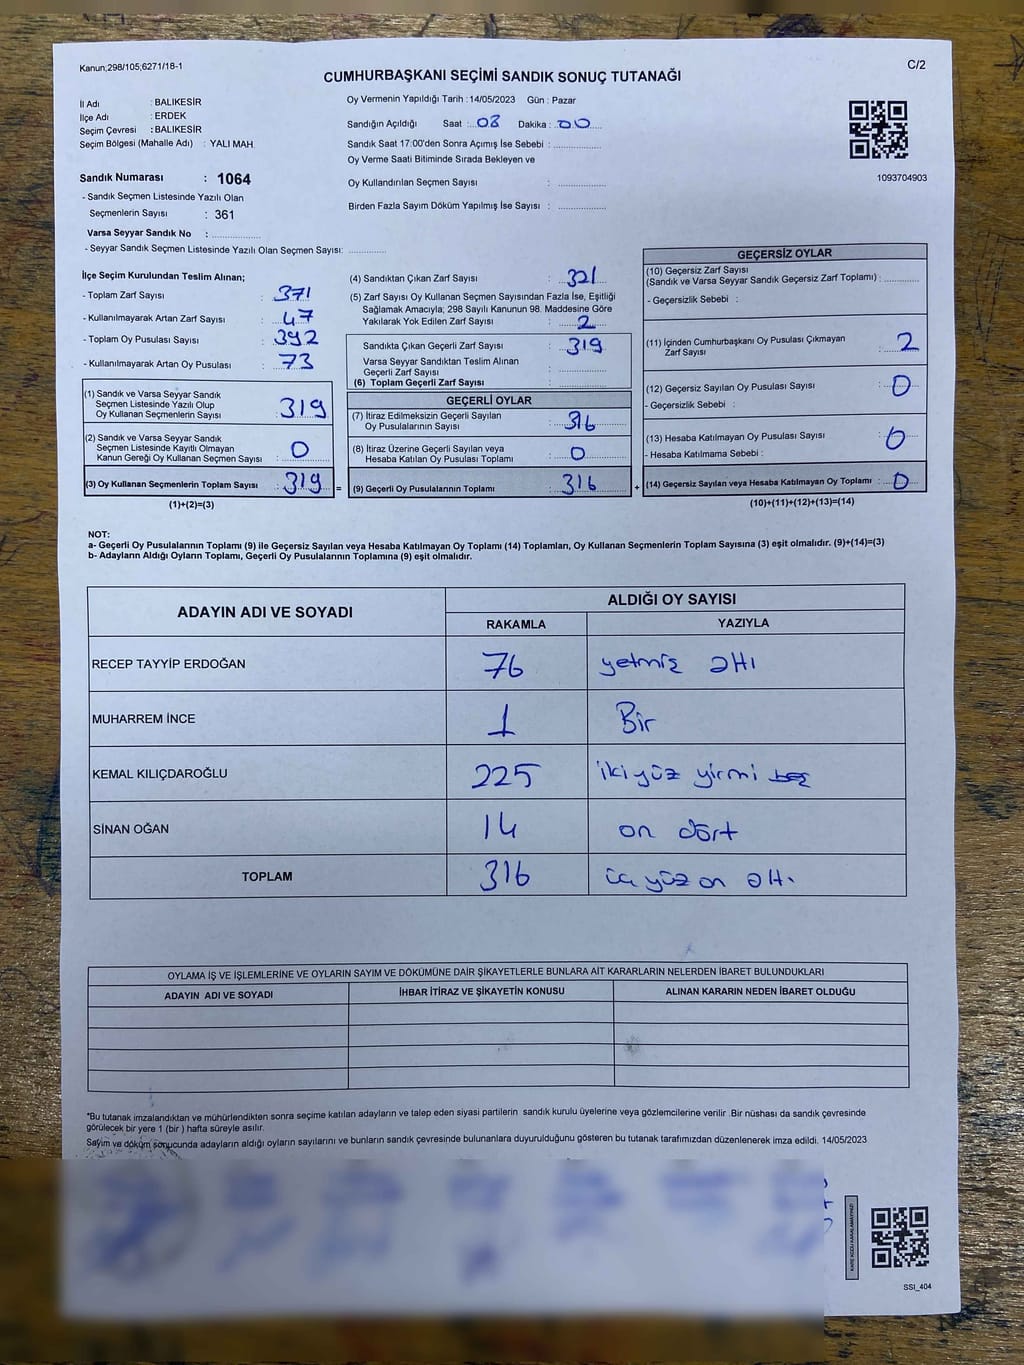 Kanun;298/105;6271/18-1
C/2
CUMHURBAŞKANI SEÇİMİ SANDIK SONUÇ TUTANAĞI
İl Adı : BALIKESİR
İlçe Adı : ERDEK
Seçim Çevresi : BALIKESİR
Seçim Bölgesi (Mahalle Adı) : YALI MAH.
Sandık Numarası : 1064
- Sandık Seçmen Listesinde Yazılı Olan
Seçmenlerin Sayısı : 361
Varsa Seyyar Sandık No :
- Seyyar Sandık Seçmen Listesinde Yazılı Olan Seçmen Sayısı:
Oy Vermenin Yapıldığı Tarih :14/05/2023 Gün : Pazar
Sandığın Açıldığı Saat : 08 Dakika : 00
Sandık Saat 17:00'den Sonra Açımış İse Sebebi :
Oy Verme Saati Bitiminde Sırada Bekleyen ve
Oy Kullandırılan Seçmen Sayısı :
Birden Fazla Sayım Döküm Yapılmış İse Sayısı :
1093704903
İlçe Seçim Kurulundan Teslim Alınan;
- Toplam Zarf Sayısı : 371
- Kullanılmayarak Artan Zarf Sayısı : 47
- Toplam Oy Pusulası Sayısı : 392
- Kullanılmayarak Artan Oy Pusulası : 73
(1) Sandık ve Varsa Seyyar Sandık
Seçmen Listesinde Yazılı Olup
Oy Kullanan Seçmenlerin Sayısı : 319
(2) Sandık ve Varsa Seyyar Sandık
Seçmen Listesinde Kayıtlı Olmayan
Kanun Gereği Oy Kullanan Seçmen Sayısı : 0
(3) Oy Kullanan Seçmenlerin Toplam Sayısı : 319 =
(1)+(2)=(3)
(4) Sandıktan Çıkan Zarf Sayısı : 321
(5) Zarf Sayısı Oy Kullanan Seçmen Sayısından Fazla İse, Eşitliği
Sağlamak Amacıyla; 298 Sayılı Kanunun 98. Maddesine Göre
Yakılarak Yok Edilen Zarf Sayısı : 2
Sandıkta Çıkan Geçerli Zarf Sayısı : 319
Varsa Seyyar Sandıktan Teslim Alınan
Geçerli Zarf Sayısı :
(6) Toplam Geçerli Zarf Sayısı :
GEÇERLİ OYLAR
(7) İtiraz Edilmeksizin Geçerli Sayılan
Oy Pusulalarının Sayısı : 316
(8) İtiraz Üzerine Geçerli Sayılan veya
Hesaba Katılan Oy Pusulası Toplamı : 0
(9) Geçerli Oy Pusulalarının Toplamı : 316 +
GEÇERSİZ OYLAR
(10) Geçersiz Zarf Sayısı
(Sandık ve Varsa Seyyar Sandık Geçersiz Zarf Toplamı) :
- Geçersizlik Sebebi :
(11) İçinden Cumhurbaşkanı Oy Pusulası Çıkmayan
Zarf Sayısı : 2
(12) Geçersiz Sayılan Oy Pusulası Sayısı : 0
- Geçersizlik Sebebi :
(13) Hesaba Katılmayan Oy Pusulası Sayısı : 0
- Hesaba Katılmama Sebebi :
(14) Geçersiz Sayılan veya Hesaba Katılmayan Oy Toplamı : 0
(10)+(11)+(12)+(13)=(14)
NOT:
a- Geçerli Oy Pusulalarının Toplamı (9) ile Geçersiz Sayılan veya Hesaba Katılmayan Oy Toplamı (14) Toplamları, Oy Kullanan Seçmenlerin Toplam Sayısına (3) eşit olmalıdır. (9)+(14)=(3)
b- Adayların Aldığı Oyların Toplamı, Geçerli Oy Pusulalarının Toplamına (9) eşit olmalıdır.
ADAYIN ADI VE SOYADI ALDIĞI OY SAYISI
RAKAMLA YAZIYLA
RECEP TAYYİP ERDOĞAN 76 yetmiş altı
MUHARREM İNCE 1 Bir
KEMAL KILIÇDAROĞLU 225 iki yüz yirmi beş
SİNAN OĞAN 14 on dört
TOPLAM 316 üç yüz on altı
OYLAMA İŞ VE İŞLEMLERİNE VE OYLARIN SAYIM VE DÖKÜMÜNE DAİR ŞİKAYETLERLE BUNLARA AİT KARARLARIN NELERDEN İBARET BULUNDUKLARI
ADAYIN ADI VE SOYADI İHBAR İTİRAZ VE ŞİKAYETİN KONUSU ALINAN KARARIN NEDEN İBARET OLDUĞU
*Bu tutanak imzalandıktan ve mühürlendikten sonra seçime katılan adayların ve talep eden siyasi partilerin sandık kurulu üyelerine veya gözlemcilerine verilir .Bir nüshası da sandık çevresinde
görülecek bir yere 1 (bir ) hafta süreyle asılır.
Sayım ve döküm sonucunda adayların aldığı oyların sayılarını ve bunların sandık çevresinde bulunanlara duyurulduğunu gösteren bu tutanak tarafımızdan düzenlenerek imza edildi. 14/05/2023
KARE KODU KARALAMAYINIZ!
SSI_404